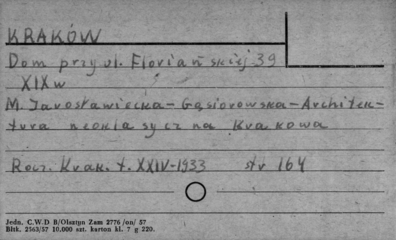 KRAKÓW
Dom przy ul. Floriańskiej 39
XIX w
M. Jarosławiecka-Gąsiorowska-Architek-
tura neoklasyczna Krakowa
Rocz. Krak. t. XXIV-1933 str 164
Jedn. C.W.D B/Olsztyn Zam 2776 /on/ 57
Bltk. 2563/57 10.000 szt. karton kl. 7 g 220.